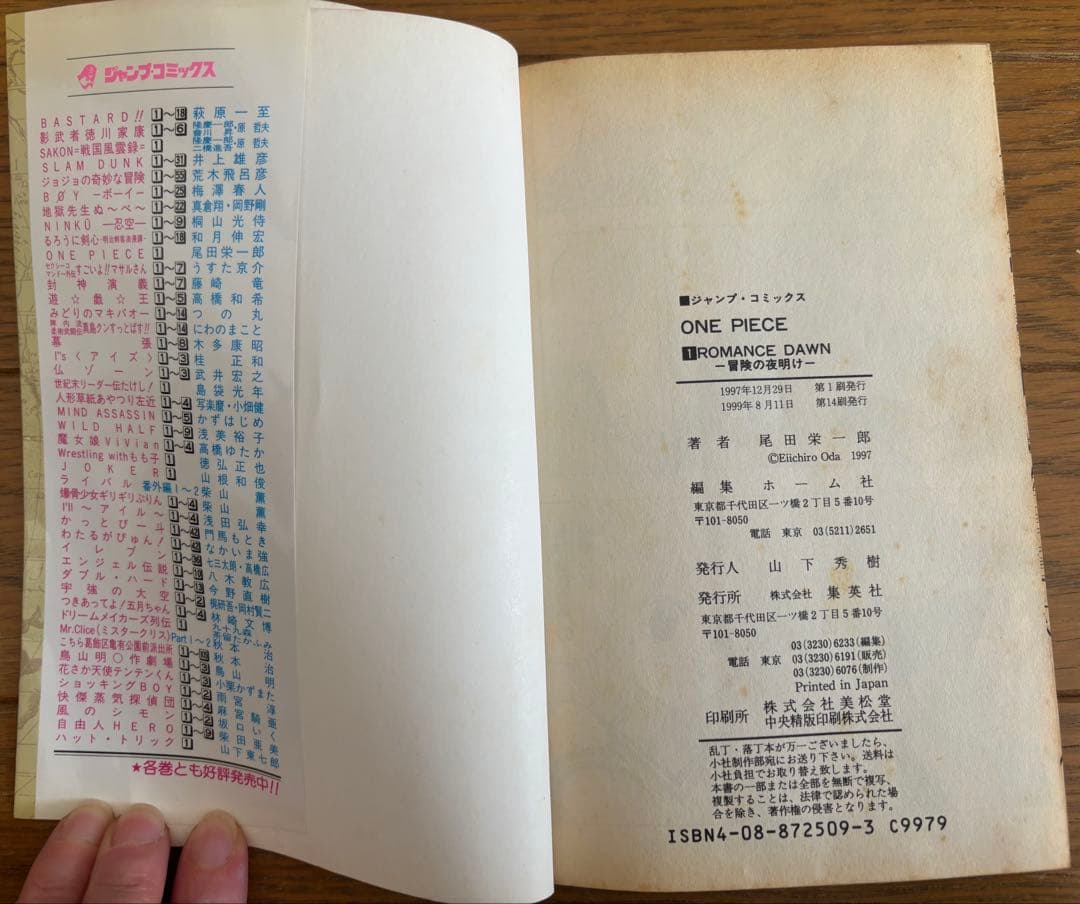 ジャンプ・コミックス
BASTARD!! 1〜18 萩原一至
影武者徳川家康 1〜6 隆慶一郎・會川昇・原哲夫
SAKON=戦国風雲録= 1 隆慶一郎・二橋進吾・原哲夫
SLAM DUNK 1〜31 井上雄彦
ジョジョの奇妙な冒険 1〜55 荒木飛呂彦
BØY ―ボーイ― 1〜25 梅澤春人
地獄先生ぬ〜べ〜 1〜22 真倉翔・岡野剛
NINKŪ ―忍空― 1〜9 桐山光侍
るろうに剣心-明治剣客浪漫譚- 1〜18 和月伸宏
ONE PIECE 1 尾田栄一郎
セクシーコマンドー外伝すごいよ!!マサルさん 1〜7 うすた京介
封神演義 1〜7 藤崎竜
遊☆戯☆王 1〜5 高橋和希
みどりのマキバオー 1〜14 つの丸
陣内流柔術武闘伝真島クンすっとばす!! 1〜14 にわのまこと
幕張 1〜8 木多康昭
I"s〈アイズ〉 1〜3 桂正和
仏ゾーン 1〜3 武井宏之
世紀末リーダー伝たけし! 1 島袋光年
人形草紙あやつり左近 1〜4 写楽麿・小畑健
MIND ASSASSIN 1〜5 かずはじめ
WILD HALF 1〜9 浅美裕子
魔女娘ViVian 1〜4 高橋ゆたか
Wrestling withもも子 1 徳弘正也
JOKER 1 山根和俊
ライバル 番外編1〜2 柴山薫
爆骨少女ギリギリぷりん 1〜4 柴山薫
I'll 〜アイル〜 1〜4 浅田弘幸
かっとび一斗 門馬もとき
わたるがぴゅん! なかいま強
イレブン 七三太朗・高橋広
エンジェル伝説 1〜10 八木教広
ダブル・ハード 1〜13 今野直樹
宇強の大空 1〜2 梶研吾・岡村賢二
つきあってよ!五月ちゃん 1〜4 林崎文博
ドリームメイカーズ列伝 1 九十九森・茶留たかふみ
Mr.Clice(ミスタークリス) Part1〜2 秋本治
こちら葛飾区亀有公園前派出所 秋本治
鳥山明〇作劇場 1〜3 鳥山明
花さか天使テンテンくん 1〜3 小栗かずまた
ショッキングBOY 1〜2 雨宮淳
快傑蒸気探偵団 1〜4 麻宮騎亜
風のシモン 1〜2 坂口いく
自由人HERO 1〜9 柴田亜美
ハット・トリック 1 山下東七郎
★各巻とも好評発売中!!
■ジャンプ・コミックス
ONE PIECE
1 ROMANCE DAWN
―冒険の夜明け―
1997年12月29日 第1刷発行
1999年8月11日 第14刷発行
著者 尾田栄一郎
©Eiichiro Oda 1997
編集 ホーム社
東京都千代田区一ツ橋2丁目5番10号
〒101-8050
電話 東京 03(5211)2651
発行人 山下秀樹
発行所 株式会社 集英社
東京都千代田区一ツ橋2丁目5番10号
〒101-8050
03(3230)6233(編集)
電話 東京 03(3230)6191(販売)
03(3230)6076(制作)
Printed in Japan
印刷所 株式会社美松堂
中央精版印刷株式会社
乱丁・落丁本が万一ございましたら、
小社制作部宛にお送り下さい。送料は
小社負担でお取り替え致します。
本書の一部または全部を無断で複写、
複製することは、法律で認められた場
合を除き、著作権の侵害となります。
ISBN4-08-872509-3 C9979